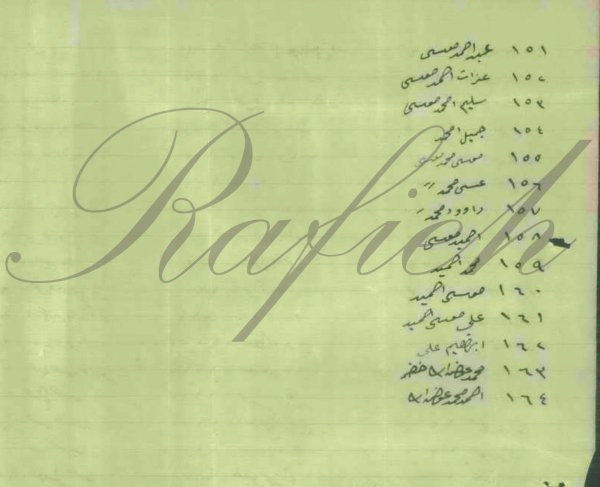 ١٥١ عبد احمد موسى
١٥٢ عزات احمد موسى
١٥٣ سليم احمد موسى
١٥٤ جميل احمد
١٥٥ موسى محمد موسى
١٥٦ عيسى محمد "
١٥٧ داوود محمد "
١٥٨ احميد موسى
١٥٩ محمد احميد
١٦٠ موسى احميد
١٦١ علي موسى احميد
١٦٢ ابراهيم علي
١٦٣ محمد عوض الله خضر
١٦٤ احمد محمد عوض الله
Rafieh